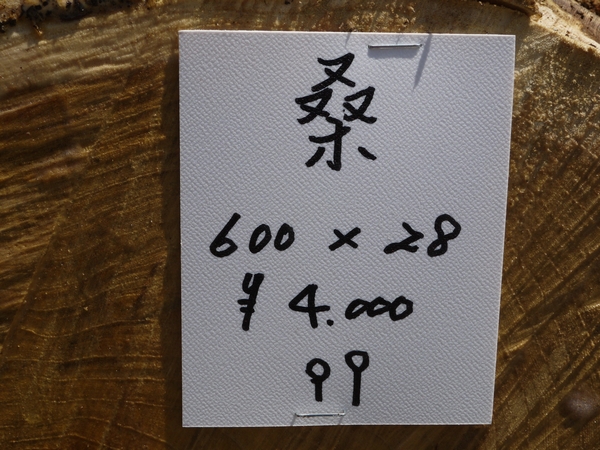 桑
600 × 28
¥ 4.000
99